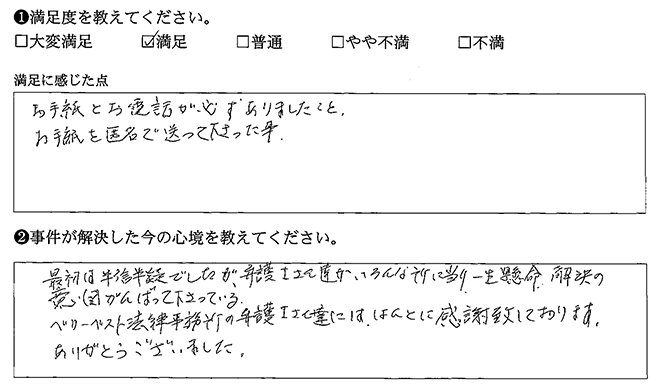 ❶満足度を教えてください。
□大変満足 ☑満足 □普通 □やや不満 □不満
満足に感じた点
お手紙とお電話が必ずありましたこと。
お手紙を匿名で送って下さった事.
❷事件が解決した今の心境を教えてください。
最初は半信半疑でしたが、弁護士さん達が、いろんな所に当り一生懸命、解決の
為がんばって下さっている.
ベリーベスト法律事務所の弁護士さん達には、ほんとに感謝致しております。
ありがとうございました。